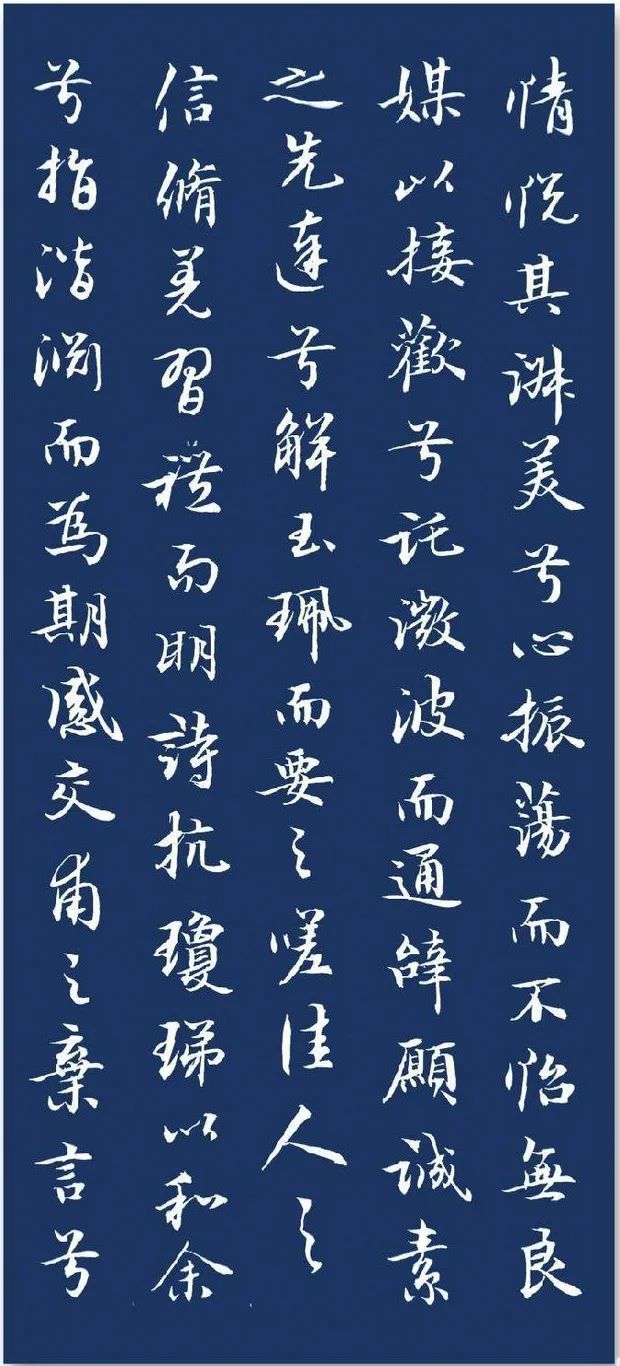 情悦其淑美兮心振蕩而不怡無良
媒以接歡兮託微波而通辭願誠素
之先達兮解玉珮而要之嗟佳人之
信脩羌習禮而明詩抗瓊珶以和余
兮指潛淵而為期感交甫之棄言兮